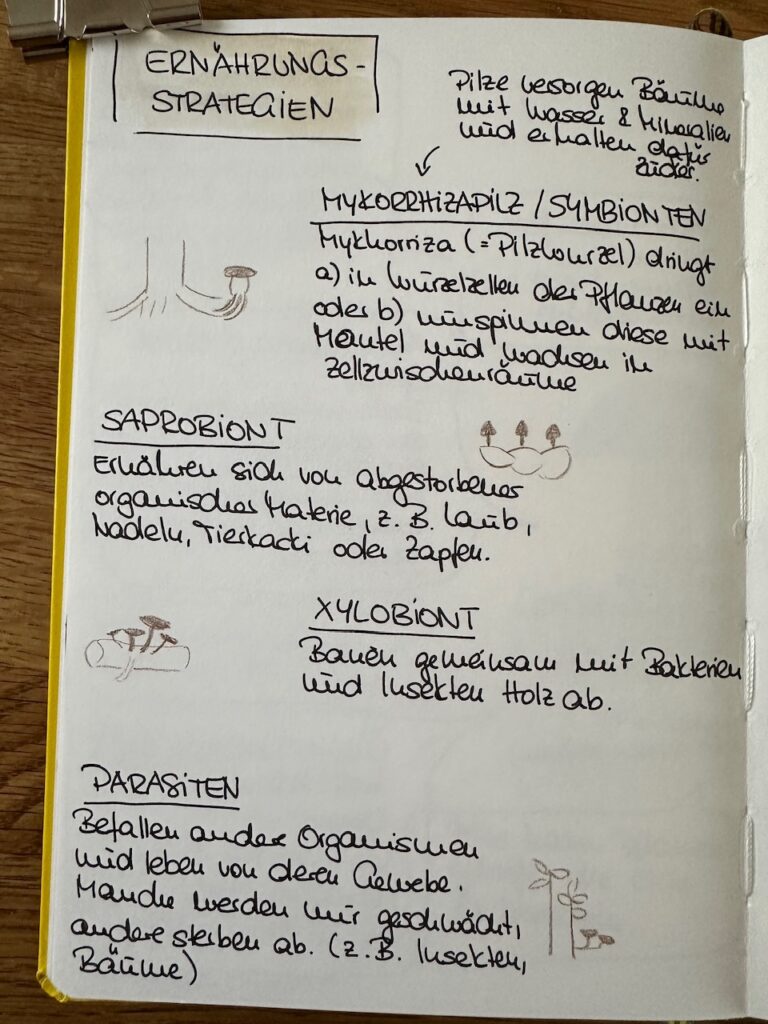 ERNÄHRUNGS-
STRATEGIEN
Pilze versorgen Bäume
mit Wasser & Mineralien
und erhalten dafür
Zucker.
MYKORRHIZAPILZ / SYMBIONTEN
Mykhorriza (=Pilzwurzel) dringt
a) in Wurzelzellen der Pflanzen ein
oder b) umspinnen diese mit
Mantel und wachsen in
Zellzwischenräume
SAPROBIONT
Ernähren sich von abgestorbener
organischer Materie, z.B. Laub,
Nadeln, Tierkacki oder Zapfen.
XYLOBIONT
Bauen gemeinsam mit Bakterien
und Insekten Holz ab.
PARASITEN
Befallen andere Organismen
und leben von deren Gewebe.
Manche werden nur geschwächt,
andere sterben ab. (z.B. Insekten,
Bäume)